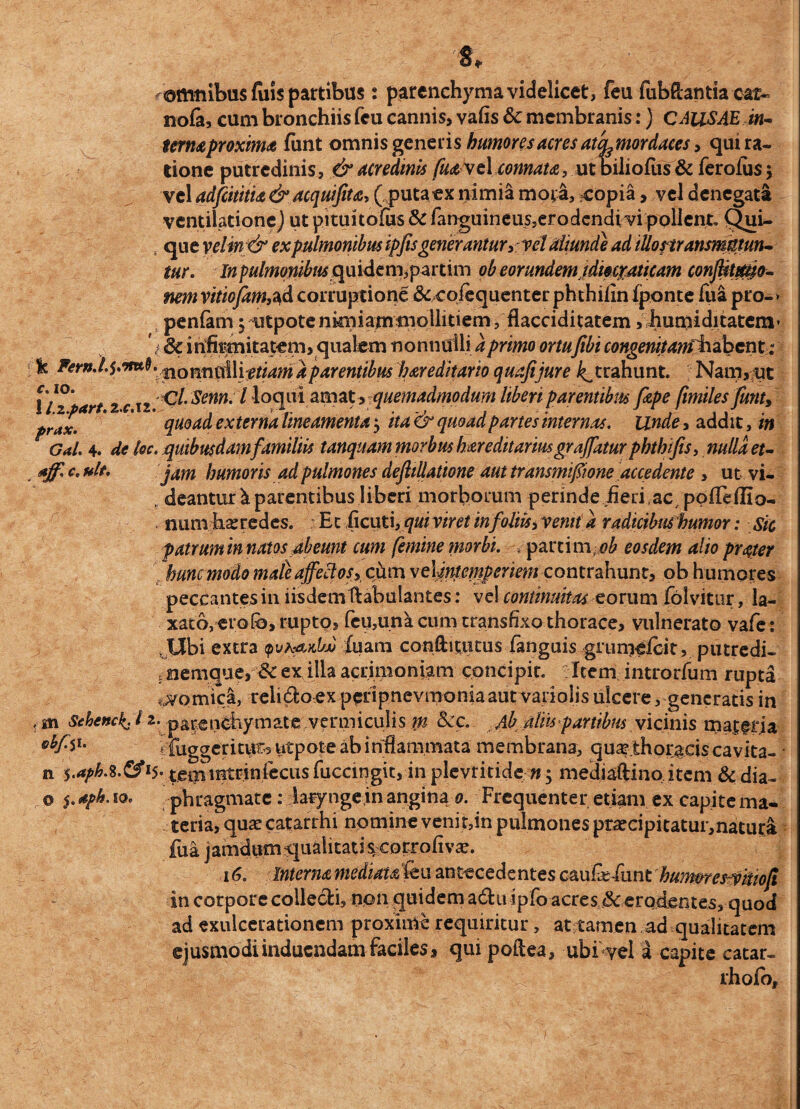 8.
omnibus ſuis partibus : parenchyma videlicet, ſeu ſubſtantia car-
noſa, cum bronchiis ſeu cannis, vaſis & membranis : ) CAUSAE in-
ternæ proximæ ſunt omnis generis humores acres atq; mordaces, qui ra-
tione putredinis, & acredinis ſuæ vel connatæ, ut bilioſus & ſeroſus ;
vel adſcititiæ & acquiſitæ, (puta ex nimiâ morâ, copiâ, vel denegatâ
ventilatione) ut pituitoſus & ſanguineus, erodendi vi pollent. Qui-
que vel in & ex pulmonibus ipſis generantur, vel aliunde ad illos transmittun-
tur. In pulmonibus quidem, partim ob eorundem idiocraticam conſtitutio-
nem vitioſam, ad corruptionē & coſequenter phthiſin ſponte ſuâ pro-
penſam ; utpote nimiam mollitiem, flacciditatem, humiditatem
& infirmitatem, qualem nonnulli à primo ortu ſibi congenitam habent ;
k Fern. l. 5. nonnulli etiam à parentibus hæreditario quaſi jure k trahunt. Nam, ut
c. 10.
l l. 2. part. 2. c. 12. Cl. Senn. l loqui amat, quemadmodum liberi parentibus ſæpe ſimiles ſunt,
prax. quoad externa lineamenta ; ita & quoad partes internas. Unde, addit, in
Gal. 4. de loc. quibusdam familiis tanquam morbus hæreditarius graſſatur phthiſis, nullâ et-
aff. c. ult. jam humoris ad pulmones deſtillatione aut transmiſſione accedente, ut vi-
deantur à parentibus liberi morborum perinde fieri ac poſſeſſio-
num hæredes. Et ſicuti, qui viret in foliis, venit à radicibus humor : Sic
patrum in natos abeunt cum ſemine morbi. partim ob eosdem alio præter
hunc modo malè affectos, cùm vel intemperiem contrahunt, ob humores
peccantes in iisdem ſtabulantes : vel continuitas eorum ſolvitur, la-
xato, eroſo, rupto, ſeu, unà cum transfixo thorace, vulnerato vaſe :
Ubi extra φυλακὴν ſuam conſtitutus ſanguis grumeſcit, putredi-
nemque, & ex illa acrimoniam concipit. Item introrſum rupta
vomicâ, relicto ex peripnevmonia aut variolis ulcere, generatis in
m Schenck. l 2. parenchymate vermiculis m &c. Ab aliis partibus vicinis materia
obſ. 51. ſuggeritur, utpote ab inflammata membrana, quæ thoracis cavita-
n 5. aph. 8. & 15. tem intrinſecus ſuccingit, in plevritide n ; mediaſtino item & dia-
o 5. aph. 10. phragmate : larynge in angina o. Frequenter etiam ex capite ma-
teria, quæ catarrhi nomine venit, in pulmones præcipitatur, naturâ
ſuâ jamdum qualitatis corroſivæ.
16. Internæ mediatæ ſeu antecedentes cauſæ ſunt humores vitioſi
in corpore collecti, non quidem actu ipſo acres & erodentes, quod
ad exulcerationem proximè requiritur, at tamen ad qualitatem
ejusmodi induendam faciles, qui poſtea, ubi vel à capite catar-
rhoſo,